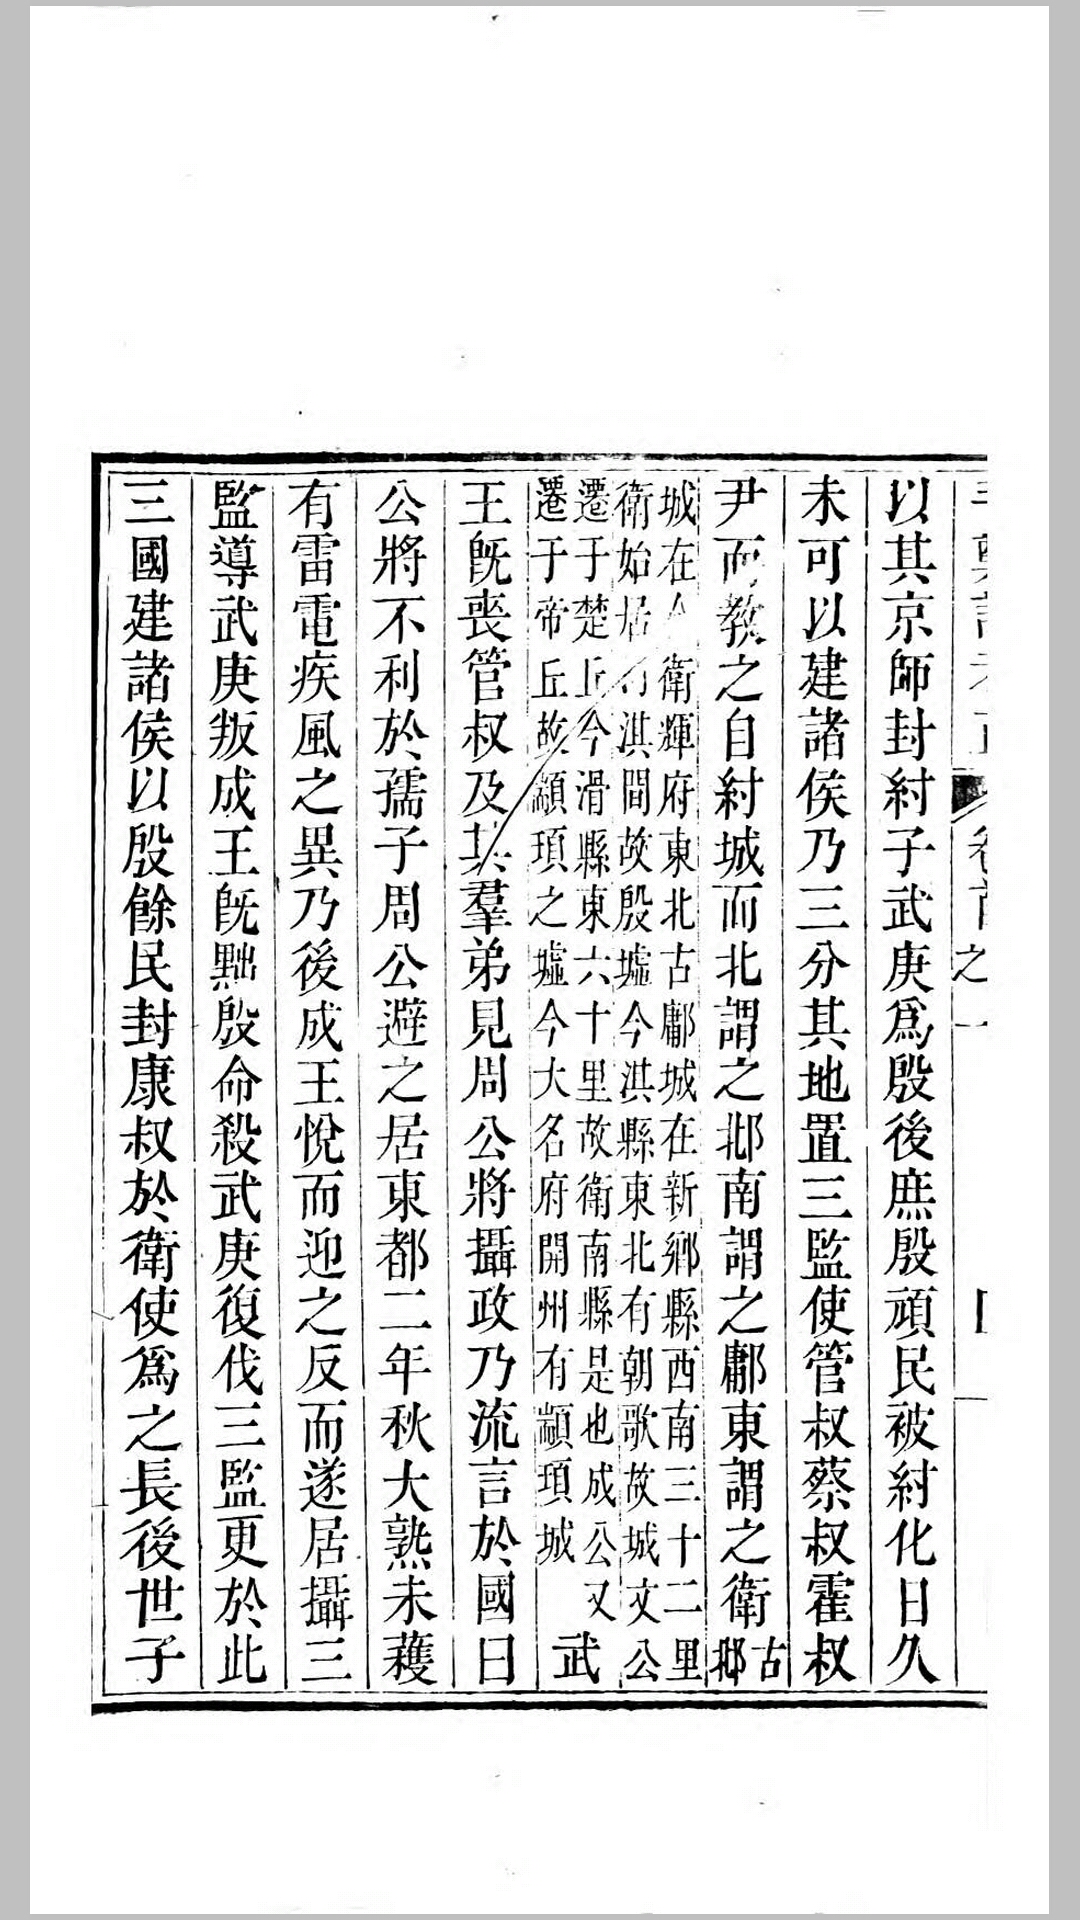 卷首之一
以其京師封紂子武庚爲殷後庶殷頑民被紂化日久
未可以建諸侯乃三分其地置三監使管叔蔡叔霍叔
尹而教之自紂城而北謂之邶南謂之鄘東謂之衛古邶
城在衛輝府東北古鄘城在新鄉縣西南三十二里
衛始居淇間故殷墟今淇縣東北有朝歌故城文公
遷于楚丘今滑縣東六十里故衛南縣是也成公又
遷于帝丘故顓頊之墟今大名府開州有顓頊城
武
王旣喪管叔及其羣弟見周公將攝政乃流言於國曰
公將不利於孺子周公避之居東都二年秋大熟未穫
有雷電疾風之異乃後成王悅而迎之反而遂居攝三
監導武庚叛成王旣黜殷命殺武庚復伐三監更於此
三國建諸侯以殷餘民封康叔於衛使爲之長後世子